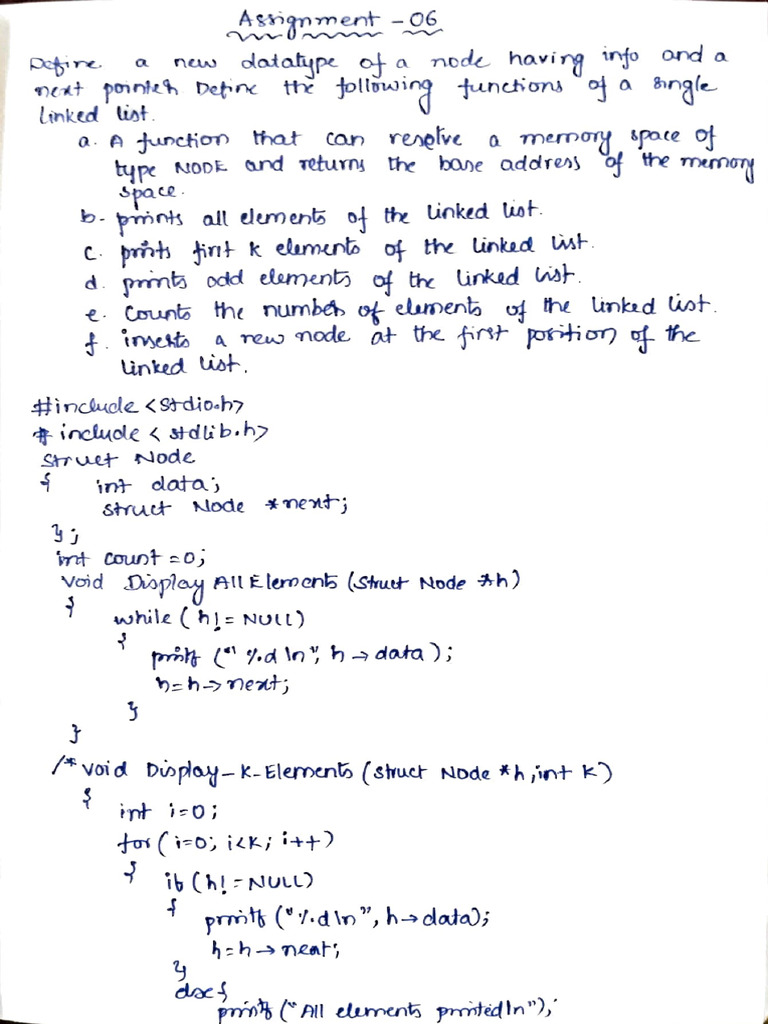 Assignment - 06
Define a new datatype of a node having info and a
next pointer Define the following functions of a single
linked list.
a. A function that can resolve a memory space of
type NODE and returns the base address of the memory
space.
b. prints all elements of the linked list.
c. prints first k elements of the linked list.
d. prints odd elements of the linked list.
e. counts the number of elements of the linked list.
f. inserts a new node at the first position of the
linked list.
#include <stdio.h>
# include < stdlib.h>
struct Node
{ int data;
struct Node *next;
};
int count = 0;
void Display All Elements (struct Node *h)
{
while (h != NULL)
{
printf ("%d \n", h → data);
h = h → next;
}
}
/* void Display_K_Elements (struct Node *h, int k)
{
int i=0;
for (i=0; i<k; i++)
{
if (h != NULL)
{
printf ("%d\n", h→data);
h = h → next;
}
else {
printf ("All elements printed\n");